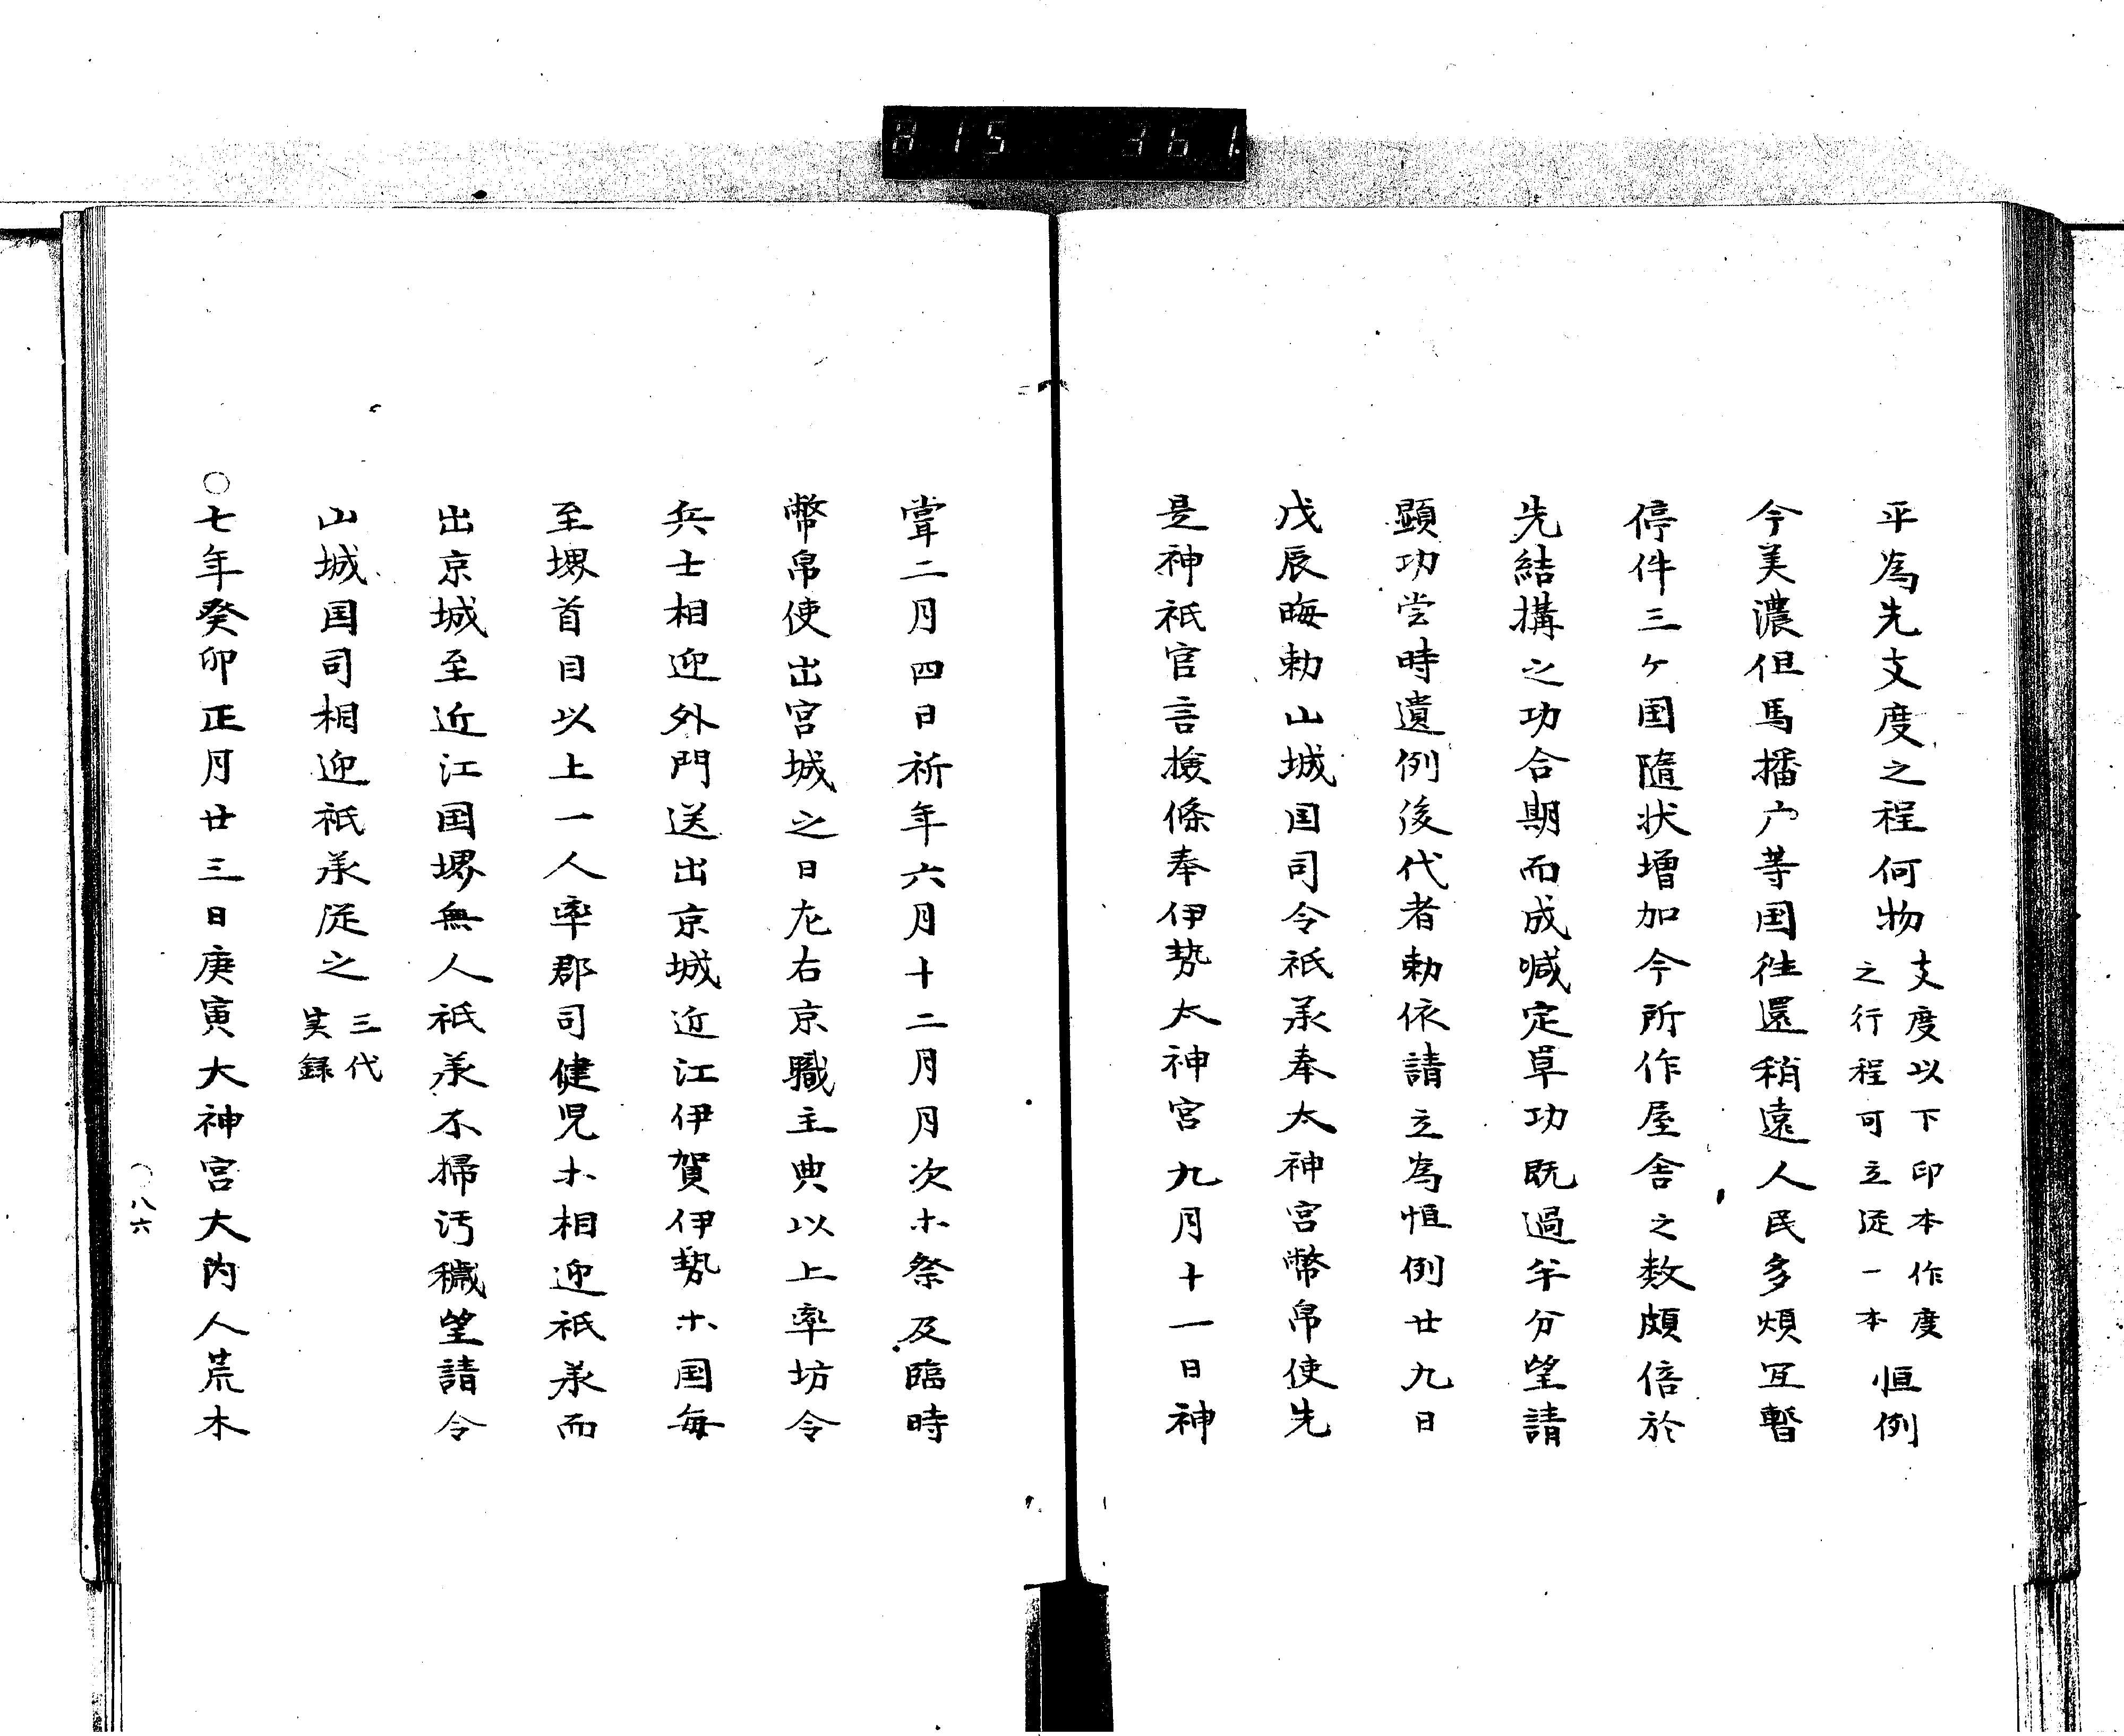 815 361
平為先支度之程何物支度以下印本作度之行程可立従一本恒例
今美濃但馬播广等国往還稍遠人民多煩冝暫
停件三ケ国隨状増加今所作屋舎之数頗倍於
先結搆之功合期而成喊定草功既過半分望請
顕功尝時遺例後代者勅依請立為恒例廿九日
戊辰晦勅山城国司令祇承奉太神宮幣帛使先
是神祇官言撿條奉伊勢太神宮九月十一日神
甞二月四日祈年六月十二月月次ホ祭及臨時
幣帛使出宮城之日左右京職主典以上率坊令
兵士相迎外門送出京城近江伊賀伊勢ホ国毎
至堺首目以上一人率郡司健児ホ相迎祇承而
出京城至近江国堺無人祇承不掃汚穢望請令
山城国司相迎祇承従之三代実録
○七年癸卯正月廿三日庚寅大神宮大内人荒木
○八六